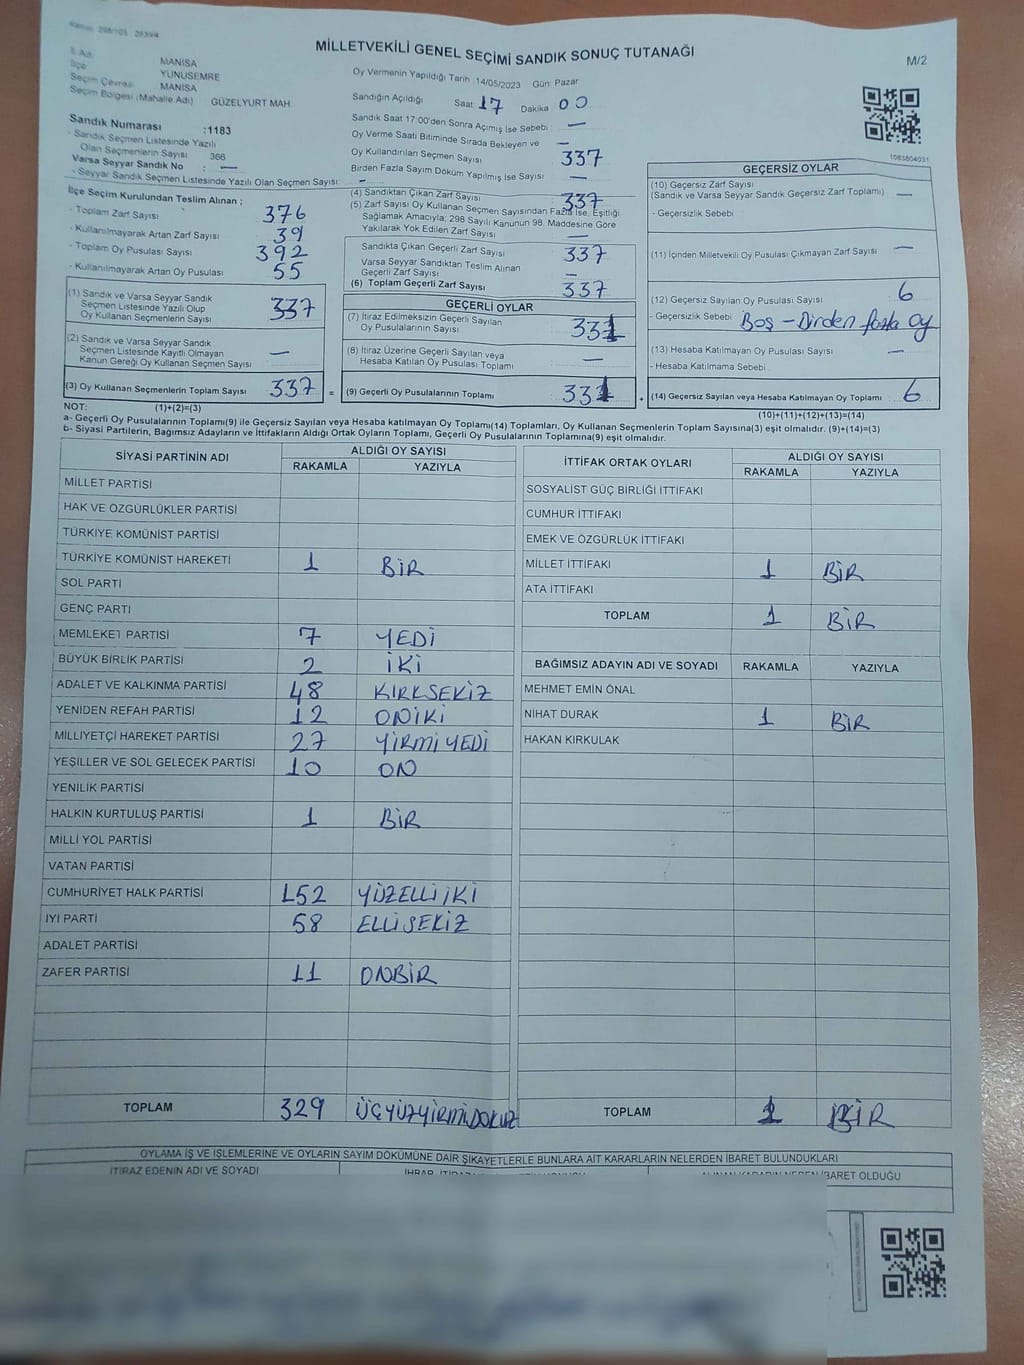 MİLLETVEKİLİ GENEL SEÇİMİ SANDIK SONUÇ TUTANAĞI
M/2
İlçe YUNUSEMRE
MANİSA
Seçim Çevresi MANİSA
Seçim Bölgesi (Mahalle Adı) GÜZELYURT MAH.
Oy Vermenin Yapıldığı Tarih 14/05/2023 Gün Pazar
Sandığın Açıldığı Saat 17 Dakika 00
Sandık Saat 17:00'den Sonra Açımış İse Sebebi : —
Oy Verme Saati Bitiminde Sırada Bekleyen ve
Oy Kullandırılan Seçmen Sayısı 337
Birden Fazla Sayım Döküm Yapılmış İse Sayısı —
Sandık Numarası :1183
- Sandık Seçmen Listesinde Yazılı
Olan Seçmenlerin Sayısı 366
Varsa Seyyar Sandık No : —
- Seyyar Sandık Seçmen Listesinde Yazılı Olan Seçmen Sayısı: —
İlçe Seçim Kurulundan Teslim Alınan ;
- Toplam Zarf Sayısı 376
- Kullanılmayarak Artan Zarf Sayısı 39
- Toplam Oy Pusulası Sayısı 392
- Kullanılmayarak Artan Oy Pusulası 55
(1) Sandık ve Varsa Seyyar Sandık
Seçmen Listesinde Yazılı Olup
Oy Kullanan Seçmenlerin Sayısı 337
(2) Sandık ve Varsa Seyyar Sandık
Seçmen Listesinde Kayıtlı Olmayan
Kanun Gereği Oy Kullanan Seçmen Sayısı —
(3) Oy Kullanan Seçmenlerin Toplam Sayısı 337 =
(4) Sandıktan Çıkan Zarf Sayısı 337
(5) Zarf Sayısı Oy Kullanan Seçmen Sayısından Fazla İse, Eşitliği
Sağlamak Amacıyla; 298 Sayılı Kanunun 98. Maddesine Göre
Yakılarak Yok Edilen Zarf Sayısı —
Sandıkta Çıkan Geçerli Zarf Sayısı 337
Varsa Seyyar Sandıktan Teslim Alınan
Geçerli Zarf Sayısı —
(6) Toplam Geçerli Zarf Sayısı 337
GEÇERLİ OYLAR
(7) İtiraz Edilmeksizin Geçerli Sayılan
Oy Pusulalarının Sayısı 331
(8) İtiraz Üzerine Geçerli Sayılan veya
Hesaba Katılan Oy Pusulası Toplamı —
(9) Geçerli Oy Pusulalarının Toplamı 331 +
GEÇERSİZ OYLAR
1083804031
(10) Geçersiz Zarf Sayısı
(Sandık ve Varsa Seyyar Sandık Geçersiz Zarf Toplamı) —
- Geçersizlik Sebebi
(11) İçinden Milletvekili Oy Pusulası Çıkmayan Zarf Sayısı —
(12) Geçersiz Sayılan Oy Pusulası Sayısı 6
- Geçersizlik Sebebi Boş – Birden fazla oy
(13) Hesaba Katılmayan Oy Pusulası Sayısı —
- Hesaba Katılmama Sebebi
(14) Geçersiz Sayılan veya Hesaba Katılmayan Oy Toplamı 6
NOT: (1)+(2)=(3) (10)+(11)+(12)+(13)=(14)
a- Geçerli Oy Pusulalarının Toplamı(9) ile Geçersiz Sayılan veya Hesaba katılmayan Oy Toplamı(14) Toplamları, Oy Kullanan Seçmenlerin Toplam Sayısına(3) eşit olmalıdır. (9)+(14)=(3)
b- Siyasi Partilerin, Bağımsız Adayların ve İttifakların Aldığı Ortak Oyların Toplamı, Geçerli Oy Pusulalarının Toplamına(9) eşit olmalıdır.
SİYASİ PARTİNİN ADI ALDIĞI OY SAYISI
RAKAMLA YAZIYLA
MİLLET PARTİSİ
HAK VE ÖZGÜRLÜKLER PARTİSİ
TÜRKİYE KOMÜNİST PARTİSİ
TÜRKİYE KOMÜNİST HAREKETİ 1 BİR
SOL PARTİ
GENÇ PARTİ
MEMLEKET PARTİSİ 7 YEDİ
BÜYÜK BİRLİK PARTİSİ 2 İKİ
ADALET VE KALKINMA PARTİSİ 48 KIRKSEKİZ
YENİDEN REFAH PARTİSİ 12 ONİKİ
MİLLİYETÇİ HAREKET PARTİSİ 27 YİRMİYEDİ
YEŞİLLER VE SOL GELECEK PARTİSİ 10 ON
YENİLİK PARTİSİ
HALKIN KURTULUŞ PARTİSİ 1 BİR
MİLLİ YOL PARTİSİ
VATAN PARTİSİ
CUMHURİYET HALK PARTİSİ 152 YÜZELLİİKİ
İYİ PARTİ 58 ELLİSEKİZ
ADALET PARTİSİ
ZAFER PARTİSİ 11 ONBİR
TOPLAM 329 ÜÇYÜZYİRMİDOKUZ
İTTİFAK ORTAK OYLARI ALDIĞI OY SAYISI
RAKAMLA YAZIYLA
SOSYALİST GÜÇ BİRLİĞİ İTTİFAKI
CUMHUR İTTİFAKI
EMEK VE ÖZGÜRLÜK İTTİFAKI
MİLLET İTTİFAKI 1 BİR
ATA İTTİFAKI
TOPLAM 1 BİR
BAĞIMSIZ ADAYIN ADI VE SOYADI RAKAMLA YAZIYLA
MEHMET EMİN ÖNAL
NİHAT DURAK 1 BİR
HAKAN KIRKULAK
TOPLAM 1 BİR
OYLAMA İŞ VE İŞLEMLERİNE VE OYLARIN SAYIM DÖKÜMÜNE DAİR ŞİKAYETLERLE BUNLARA AİT KARARLARIN NELERDEN İBARET BULUNDUKLARI
İTİRAZ EDENİN ADI VE SOYADI
ALINAN KARARIN NEDEN İBARET OLDUĞU